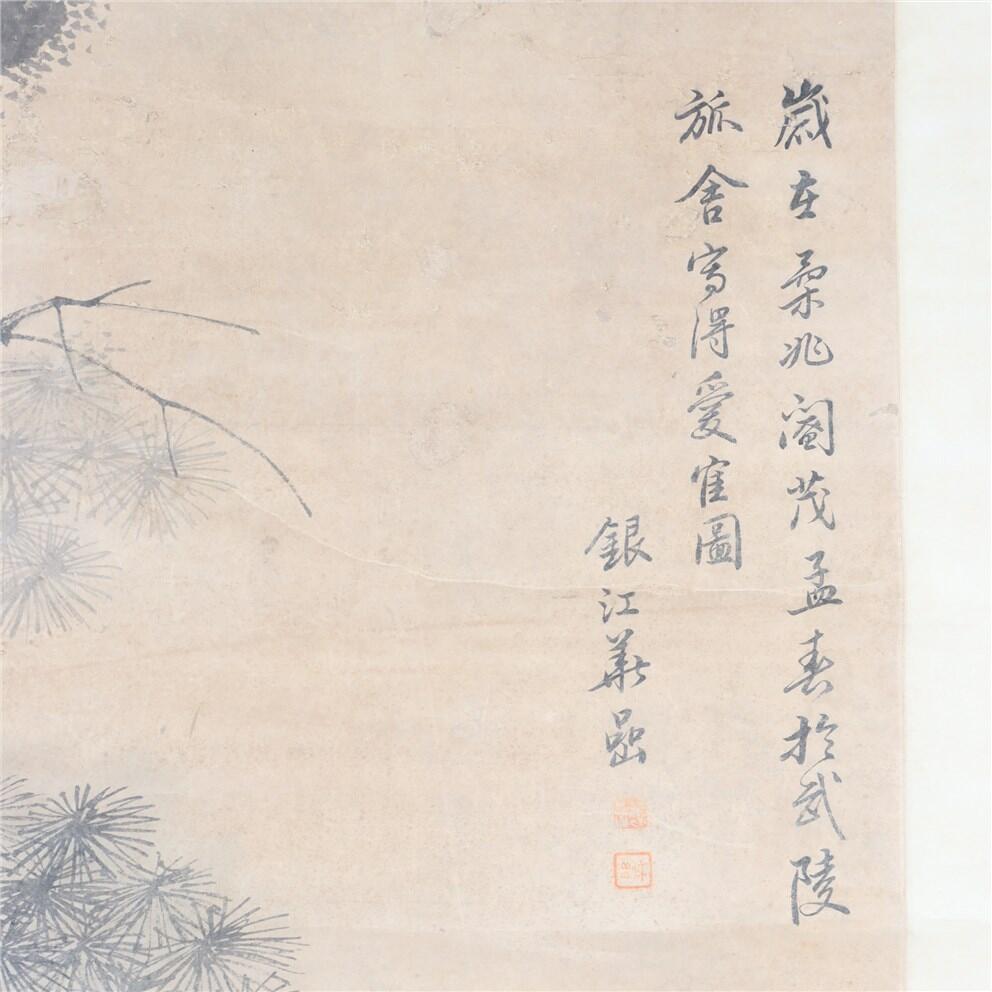 歲在柔兆閹茂孟春於武陵
旅舍寫得愛隺圖
銀江華嵒